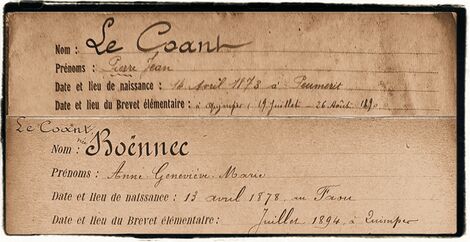 Nom : Le Coant
Prénoms : Pierre Jean
Date et lieu de naissance : 16 Avril 1873 à Peumerit
Date et lieu du Brevet élémentaire : à Quimper (19 Juillet - 26 Août 1890
Le Coant
née
Nom : Boënnec
Prénoms : Anne Geneviève Marie
Date et lieu de naissance : 13 avril 1878, au Faou
Date et lieu du Brevet élémentaire : Juillet 1894, à Quimper